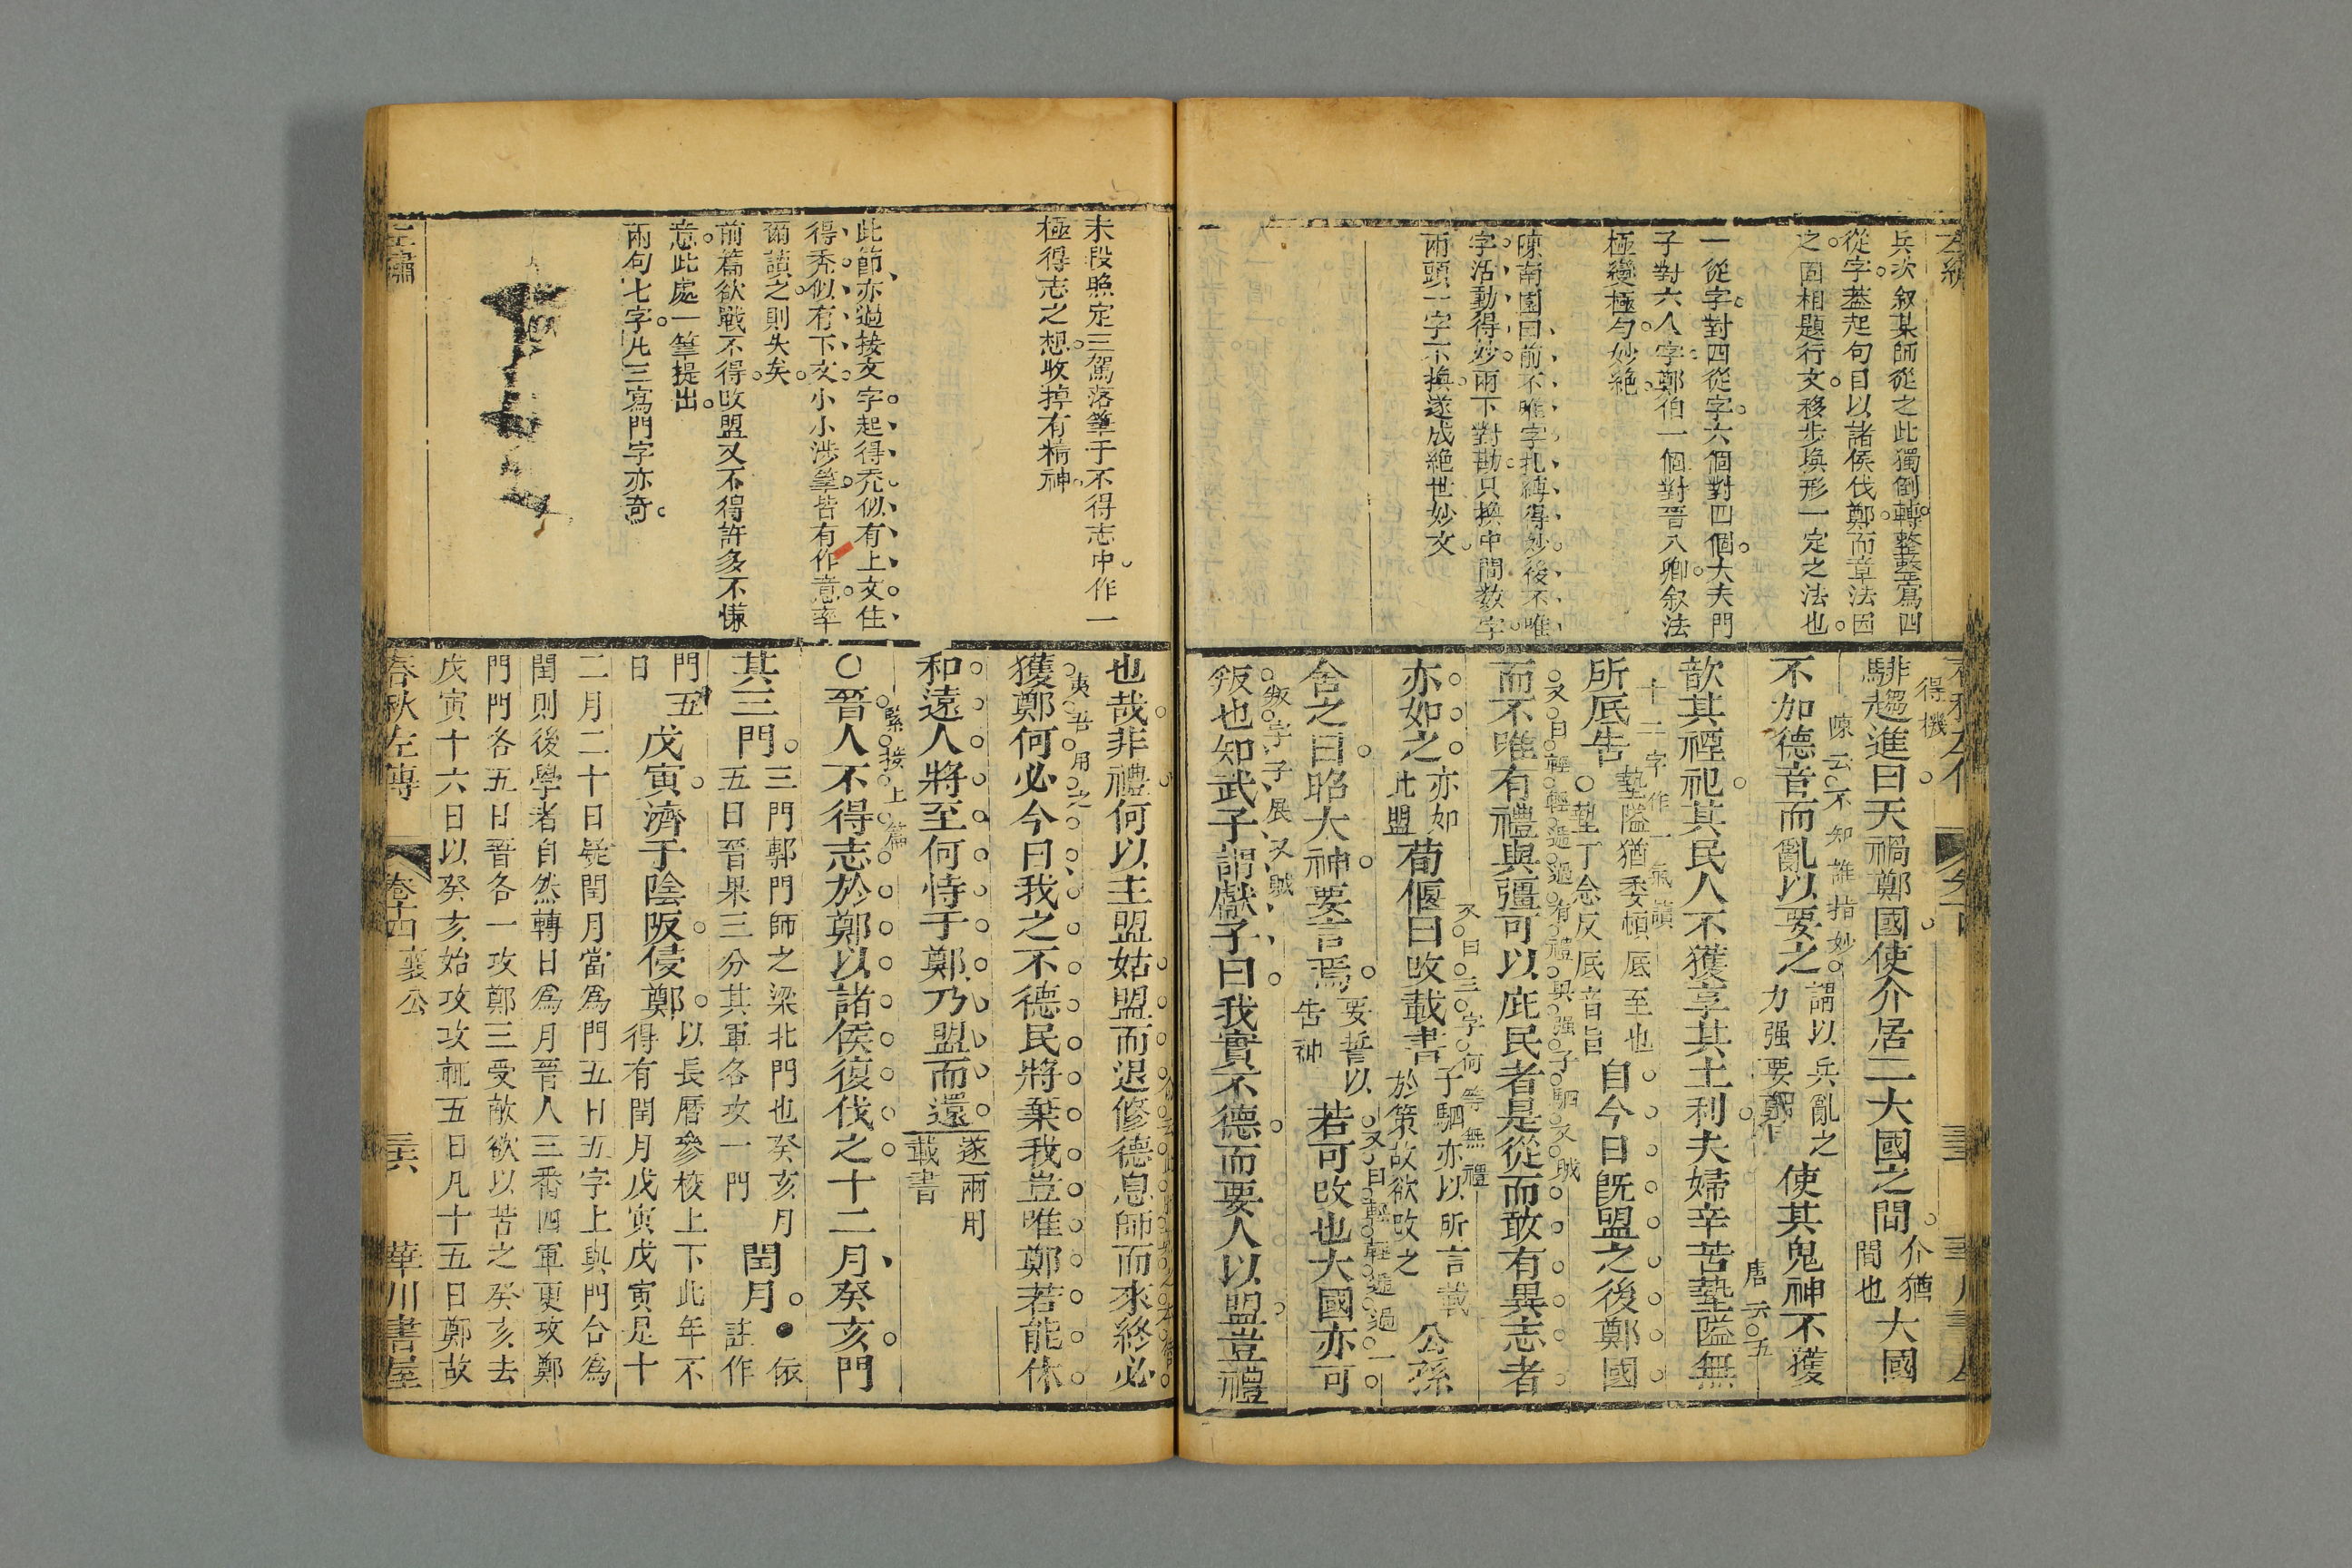 兵次叙某師從之此獨倒轉整整寫四
從字蓋起句目以諸侯伐鄭而章法因
之固相題行文移步換形一定之法也
一從字對四從字六個對四個大夫門
子對六人字鄭伯一個對晉八卿叙法
極變極勻妙絕
陳南園曰前不唯字扎縛得妙後不唯
字活動得妙兩下對勘只換中間数字
兩頭一字不換遂成絕世妙文
得機
騑趨進曰天禍鄭國使介居二大國之間
介猶
間也
大國
陳云不知誰指妙
不加德音而亂以要之
謂以兵亂之
力强要鄭
使其鬼神不獲
唐云五
歆其禋祀其民人不獲享其土利夫婦辛苦墊隘無
十二字作一氣讀
所底告
墊隘猶委頓底至也
墊丁念反底音旨
自今日既盟之後鄭國
又曰輕輕遞過有禮與强子駟又賊
而不唯有禮與彊可以庇民者是從而敢有異志者
亦如之
亦如
此盟
荀偃曰改載書
又曰三字何等無禮
子駟亦以所言載
於策故欲改之
公孫
舍之曰昭大神要言焉
要誓以
告神
又曰輕輕遞過一
若可改也大國亦可
叛字子展又賊
叛也知武子謂獻子曰我實不德而要人以盟豈禮
末段照定三駕落筆于不得志中作一
極得志之想收掉有精神
此節亦過接文字起得禿似有上文住
得禿似有下文小小涉筆皆有作意率
爾讀之則失矣
前篇欲戰不得改盟又不得許多不慊
意此處一筆提出
兩句七字凡三寫門字亦奇
也哉非禮何以主盟姑盟而退修德息師而來終必
夷吾用之
獲鄭何必今日我之不德民將棄我豈唯鄭若能休
和遠人將至何恃于鄭乃盟而還
遂兩用
載書
緊接上篇
○晉人不得志於鄭以諸侯復伐之十二月癸亥門
其三門
三門鄟門師之梁北門也癸亥月
五日晉果三分其軍各攻一門
閏月
依
註作
門五
日
戊寅濟于陰阪侵鄭
以長曆參校上下此年不
得有閏月戊寅戊寅是十
二月二十日疑閏月當爲門五日五字上與門合爲
閏則後學者自然轉日爲月晉人三番四軍更攻鄭
門門各五日晉各一攻鄭三受敵欲以苦之癸亥去
戊寅十六日以癸亥始攻攻輒五日凡十五日鄭故
左繡
春秋左傳
卷十四
襄公
三六
華川書屋